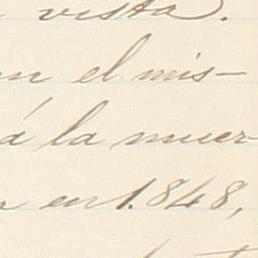 vista.
en el mis-
á la muer-
en 1.848,